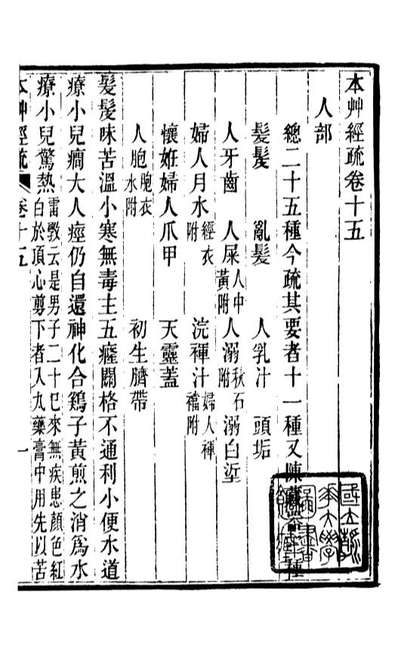 本艸經疏卷十五
人部
總二十五種今疏其要者十一種又陳藏 種
髮髲 亂髮 人乳汁 頭垢
人牙齒 人屎人中黃附 人溺秋石附 溺白垽
婦人月水經衣附 浣褌汁婦人褌襠附
懷姙婦人爪甲 天靈蓋
人胞胞衣水附 初生臍帶
髮髲味苦溫小寒無毒主五癃關格不通利小便水道
療小兒癇大人痓仍自還神化合鷄子黃煎之消爲水
療小兒驚熱雷斆云是男子二十巳來無疾患顏色紅白於頂心剪下者入丸藥膏中用先以苦
本艸經疏 卷十五 一
國立 大學 圖書